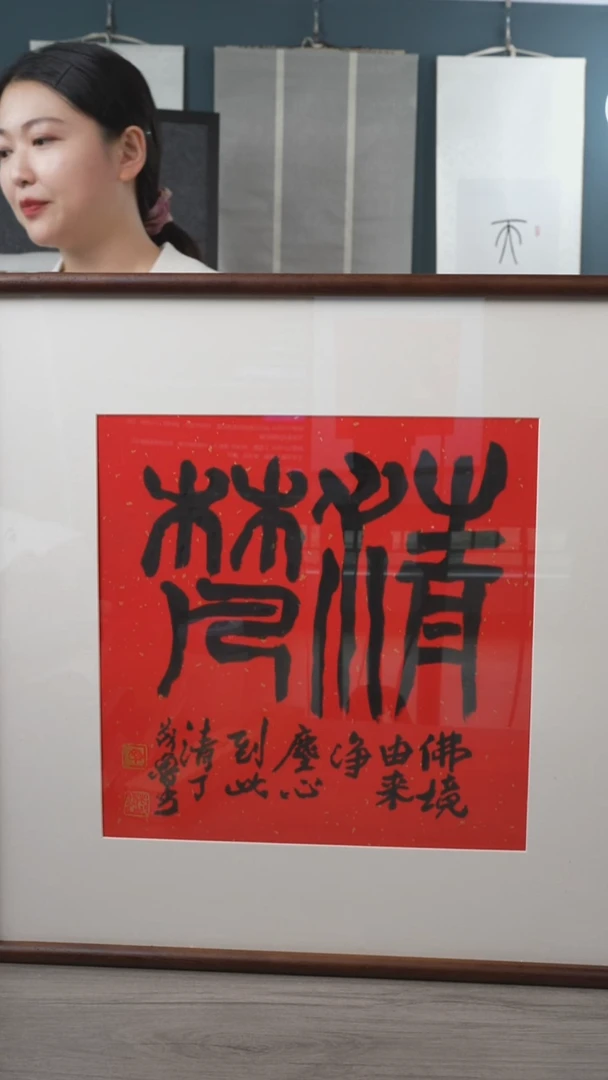 清梵
佛境
由来
净
塵心
到此
清了